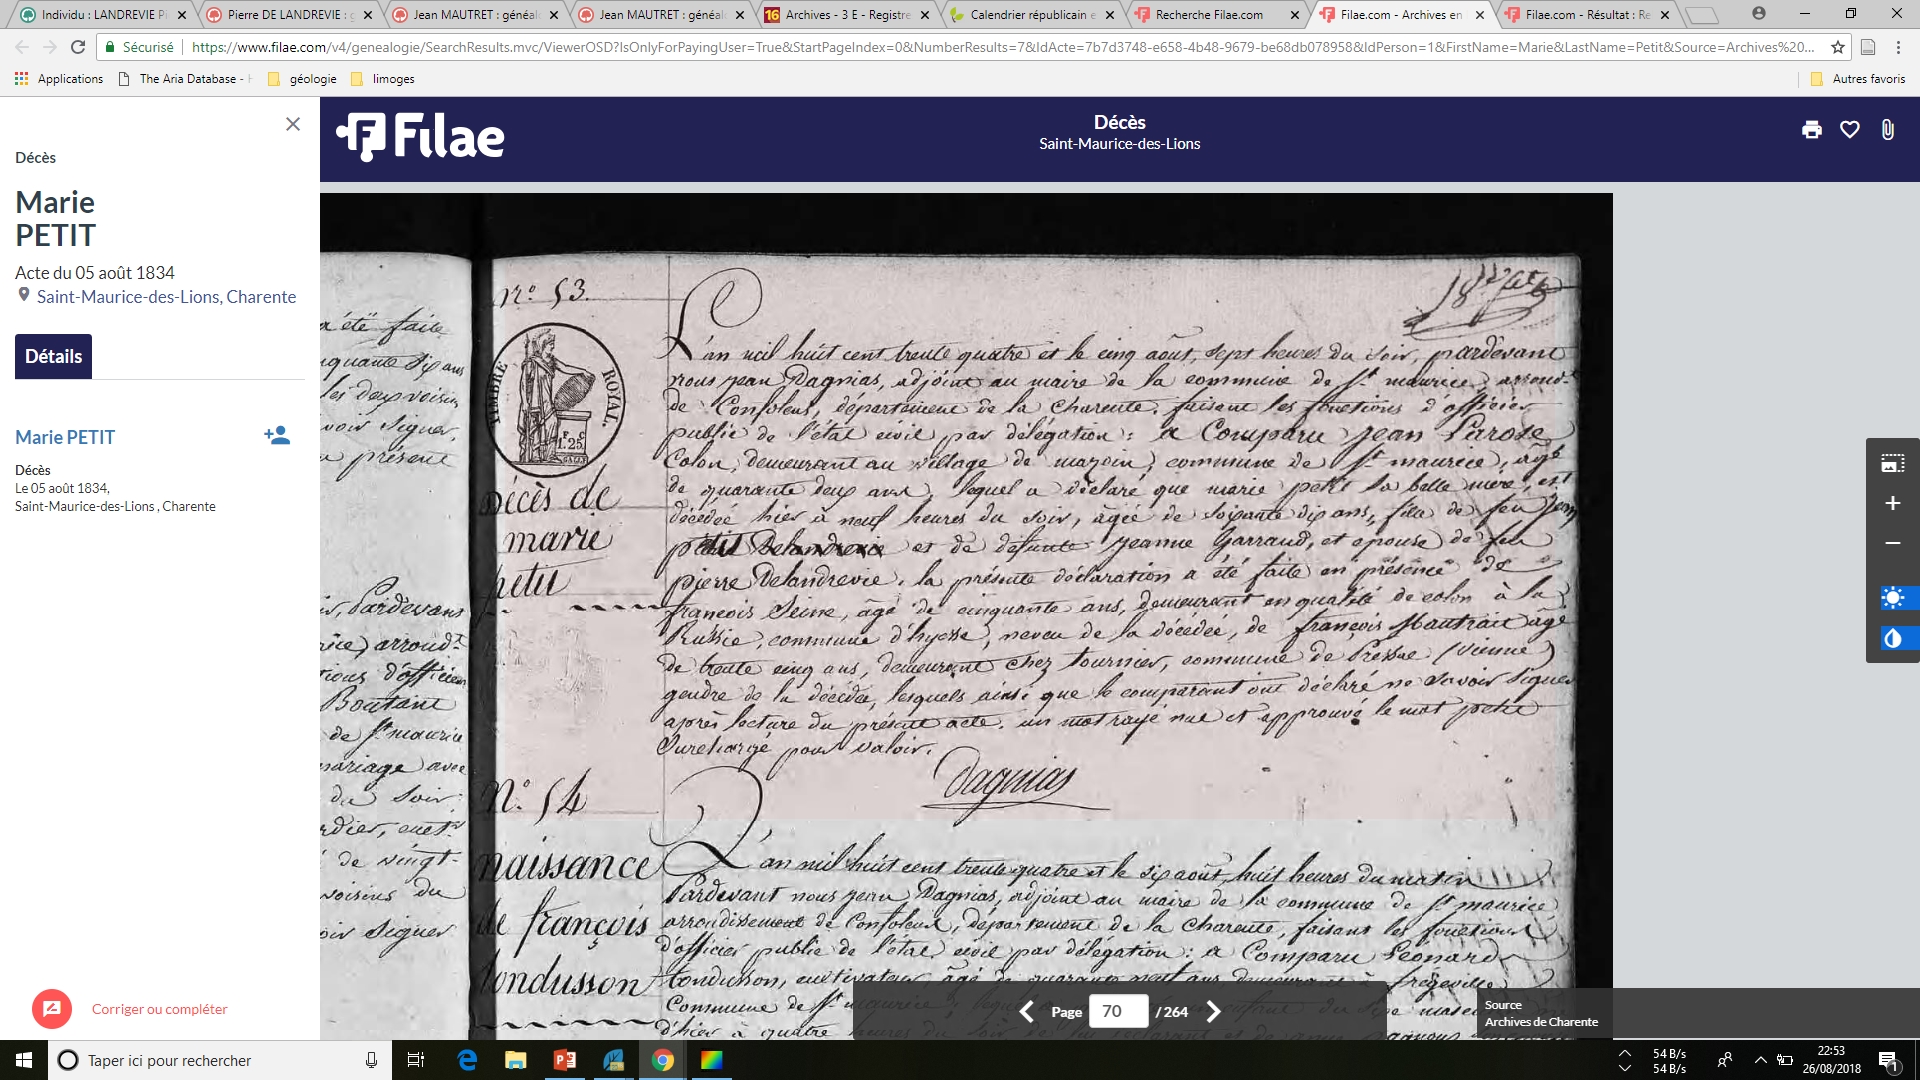 Individu : LANDREVIE P
Pierre DE LANDREVIE : g
Jean MAUTRET : généal
Jean MAUTRET : généal
Archives - 3 E - Registre
Calendrier républicain e
Recherche Filae.com
Filae.com - Archives en
Filae.com - Résultat : Re
Sécurisé
https://www.filae.com/v4/genealogie/SearchResults.mvc/ViewerOSD?IsOnlyForPayingUser=True&StartPageIndex=0&NumberResults=7&IdActe=7b7d3748-e658-4b48-9679-be68db078958&IdPerson=1&FirstName=Marie&LastName=Petit&Source=Archives%20...
Applications
The Aria Database -
géologie
limoges
Autres favoris
Décès
Marie
PETIT
Acte du 05 août 1834
Saint-Maurice-des-Lions, Charente
Détails
Marie PETIT
Décès
Le 05 août 1834,
Saint-Maurice-des-Lions , Charente
Corriger ou compléter
Filae
Décès
Saint-Maurice-des-Lions
a été faite
nquante six ans
les deux voisins
voir signer,
présent
Pardevant
arrond.t
tions d'officier
Boutant
de St maurice
mariage avec
du soir,
de vingt-
voisins du
oir signer
n.o 53.
TIMBRE ROYAL
1F. 25C.
Décès de
marie
petit
L'an mil huit cent trente quatre et le cinq août, sept heures du soir, pardevant
nous jean Dagnias, adjoint au maire de la commune de St maurice, arrond.t
de Confolens, département de la Charente, faisant les fonctions d'officier
public de l'état civil par délégation : a Comparu jean Parose
Colon, demeurant au village de mazoin, commune de St maurice, agé
de quarante deux ans, lequel a déclaré que marie petit sa belle mère, est
décédée hier à neuf heures du soir, âgée de soixante dix ans, fille de feu jean
petit Delandrevie et de défunte jeanne Garraud, et epouse de feu
pierre Delandrevie. la présente déclaration a été faite en présence de
françois Seine, âgé de cinquante ans, demeurant en qualité de colon à la
Russie, commune d'hyesse, neveu de la décédée, de françois Mautrait agé
de trente cinq ans, demeurant chez tournier, commune de Pressac (vienne)
gendre de la décédée, lesquels ainsi que le comparant ont déclaré ne savoir signer
après lecture du présent acte. un mot rayé nul et approuvé le mot petit
Surchargé pour valoir.
Dagnias
N.o 54
naissance
de françois
tondusson
L'an mil huit cent trente quatre et le six août, huit heures du matin
Pardevant nous jean Dagnias, adjoint au maire de la commune de St maurice,
arrondissement de Confolens, département de la Charente, faisant les fonctions
d'officier public de l'état civil par délégation : a Comparu Leonard
tondusson, cultivateur, âgé de quarante neuf ans, demeurant à fregeville
Commune de St maurice
d'hier à quatre heures du soir
Page 70 / 264
Source
Archives de Charente
Taper ici pour rechercher
54 B/s
54 B/s
22:53
26/08/2018
1